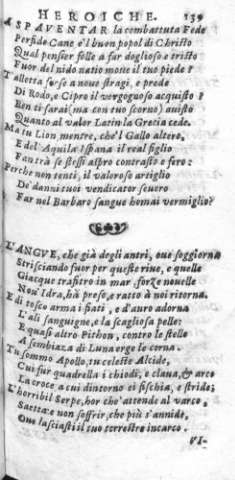 HEROICHE. 139
A SPAVENTAR la combattuta Fede
Perfido Cane è'l buon popol di Christo
Qual pensier folle a far doglioso e tristo
Fuor del nido natio moue il tuo piede?
T'alletta forse a noue stragi, e prede
Di Rodo, e Cipro il vergognoso acquisto?
Ben ti sarai (ma con tuo scorno) auisto
Quanto al valor Latin la Grecia cede.
Ma tu Lion, mentre, che'l Gallo altero,
E del'Aquila Ispana il real figlio
Fan trà se stessi aspro contrasto e fero:
Perche non tenti, il valoroso artiglio
De' danni tuoi vendicator seuero
Far nel Barbaro sangue homai vermiglio?
L'ANGVE, che già degli antri, oue soggiorna
Strisciando fuor per queste riue, e quelle
Giacque trafitto in mar, forze nouelle
Nou'Idra, hà prese, e ratto à noi ritorna.
E di tosco arma i fiati, e d'auro adorna
L'ali sanguigne, e la scagliosa pelle:
E quasi altro Pithon, contro le stelle
A sembiaza di Luna erge le corna.
Tu sommo Apollo, tu celeste Alcide,
Cui fur quadrella i chiodi, e claua, & arco
La croce a cui dintorno ei fischia, e stride;
L'horribil Serpe, hor che'attende al varco,
Saetta: e non soffrir, che più s'annide,
Oue lasciasti il tuo terrestre incarco.
VI-